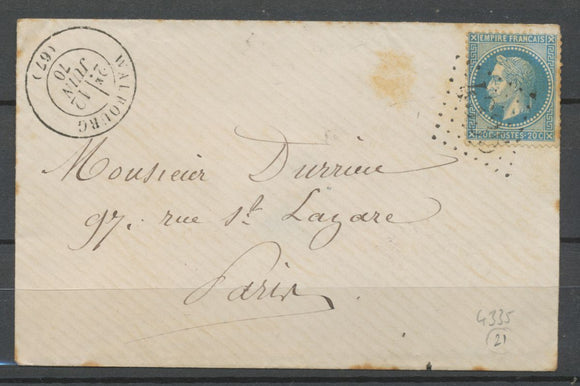 WALBOURG (67)
2e
12
JUIN
70
EMPIRE FRANÇAIS
20C POSTES 20C
Monsieur Durrieu
97. rue St. Lazare
Paris
4335
21